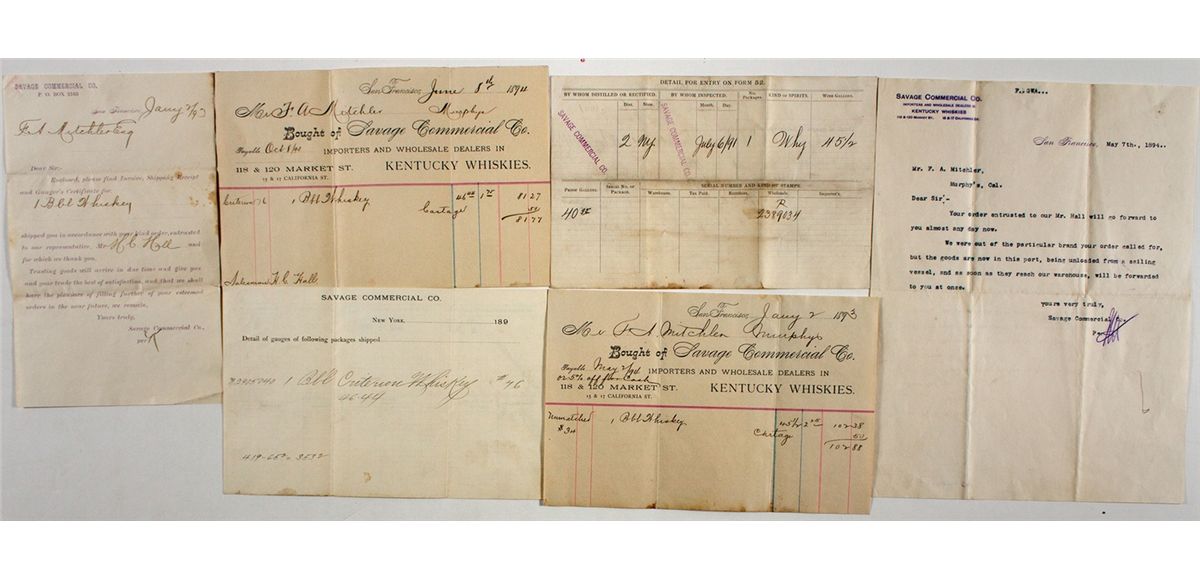 SAVAGE COMMERCIAL CO.
P. O. BOX 2383
San Francisco, Jany 2/93
F. A Mitchler Esq
Dear Sir:-
Enclosed, please find Invoice, Shipping Receipt
and Gauger's Certificate for
1 Bbl Whiskey
shipped you in accordance with your kind order, entrusted
to our representative, Mr H. C. Hall and
for which we thank you.
Trusting goods will arrive in due time and give you
and your trade the best of satisfaction, and that we shall
have the pleasure of filling further of your esteemed
orders in the near future, we remain,
Yours truly,
Savage Commercial Co.,
per
San Francisco, June 8th 1894
Mr F. A Mitchler
Murphys
Bought of Savage Commercial Co.
Payable Oct 8/94
IMPORTERS AND WHOLESALE DEALERS IN
118 & 120 MARKET ST. KENTUCKY WHISKIES.
15 & 17 CALIFORNIA ST.
Criterion 76 1 Bbl Whiskey 1 75 81 27
Cartage 50
81 77
Salesman H. C. Hall
SAVAGE COMMERCIAL CO.
NEW YORK, 189
Detail of gauges of following packages shipped
1 Bbl Criterion Whiskey # 76
46.44
DETAIL FOR ENTRY ON FORM 52.
BY WHOM DISTILLED OR RECTIFIED. BY WHOM INSPECTED. No. Packages. KIND OF SPIRITS. WINE GALLONS.
Dist. State. Month. Day.
SAVAGE COMMERCIAL CO. SAVAGE COMMERCIAL CO.
2 Ny. July 6/91 1 Why 45 1/2
PROOF GALLONS. SERIAL NO. OF PACKAGE. SERIAL NUMBER AND KIND OF STAMPS.
Warehouse. Tax Paid. Rectifiers. Wholesale. Importer's.
R
2389034
San Francisco, Jany 2 1893
Mr F A Mitchler Murphys
Bought of Savage Commercial Co.
Payable May 2/94
or 5% off for Cash
IMPORTERS AND WHOLESALE DEALERS IN
118 & 120 MARKET ST. KENTUCKY WHISKIES.
15 & 17 CALIFORNIA ST.
Unmatched 1 Bbl Whiskey 45 1/2 2 25 102 38
$34 Cartage 50
102 88
SAVAGE COMMERCIAL CO.
IMPORTERS AND WHOLESALE DEALERS IN
KENTUCKY WHISKIES
118 & 120 MARKET ST. 15 & 17 CALIFORNIA ST.
San Francisco, May 7th., 1894..
Mr. F. A. Mitchler,
Murphy's, Cal.
Dear Sir:-
Your order entrusted to our Mr. Hall will go forward to
you almost any day now.
We were out of the particular brand your order called for,
but the goods are now in this port, being unloaded from a sailing
vessel, and as soon as they reach our warehouse, will be forwarded
to you at once.
yours very truly,
Savage Commercial Co.
Per